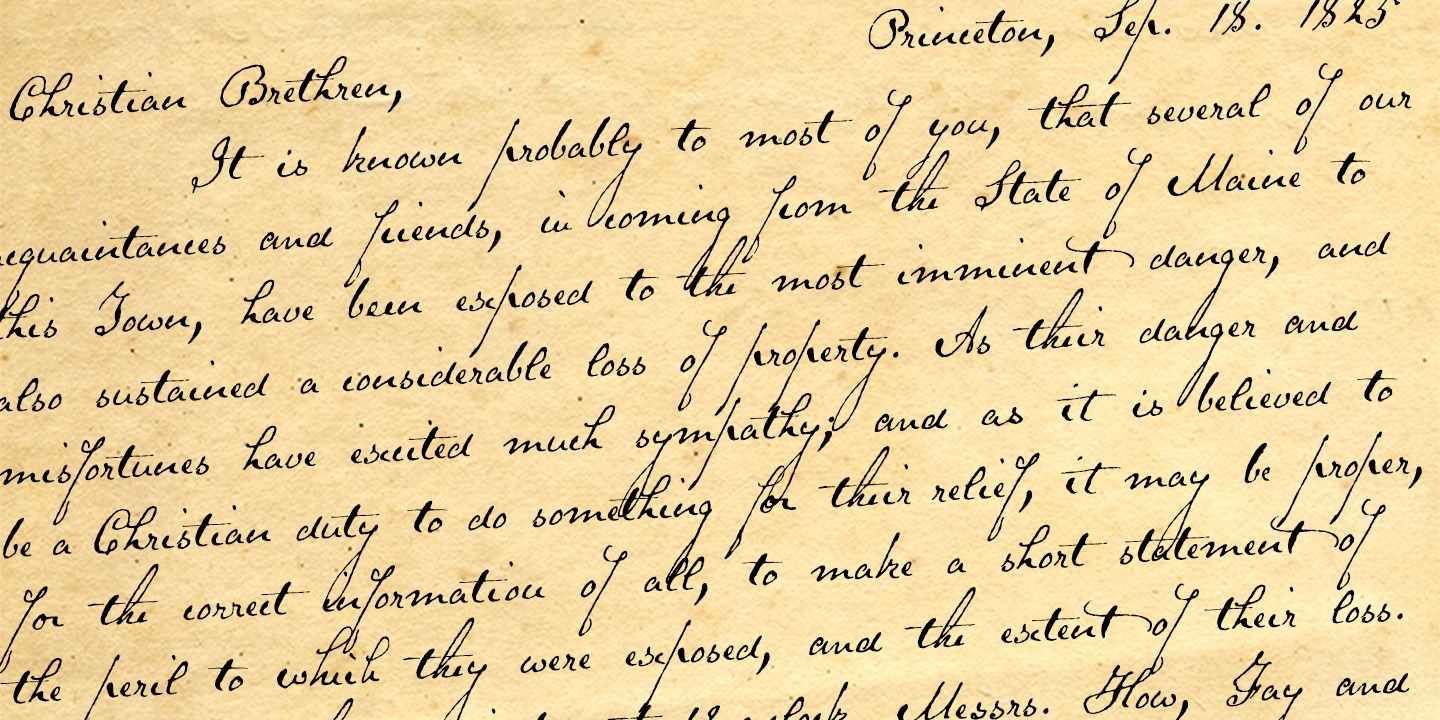 Princeton, Sep. 18. 1825
Christian Brethren,
It is known probably to most of you, that several of our
acquaintances and friends, in coming from the State of Maine to
this Town, have been exposed to the most imminent danger, and
also sustained a considerable loss of property. As their danger and
misfortunes have excited much sympathy; and as it is believed to
be a Christian duty to do something for their relief, it may be proper,
for the correct information of all, to make a short statement of
the peril to which they were exposed, and the extent of their loss.
Messrs. How, Fay and